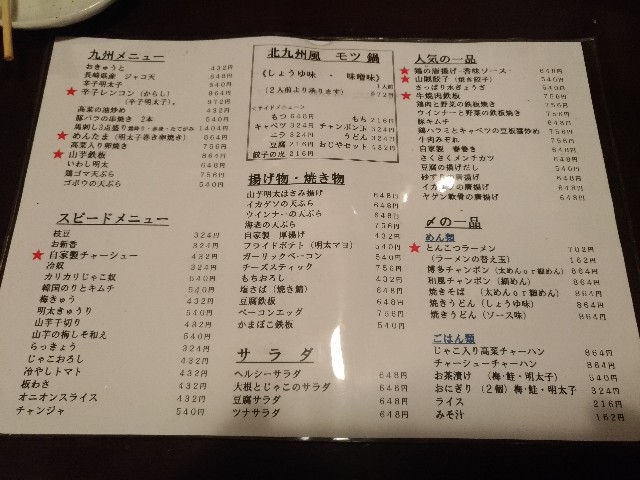 九州メニュー
おきゅうと 432円
長崎県産 ジャコ天 648円
辛子明太子 540円
★辛子レンコン(からし) 864円
(辛子明太子)。 972円
高菜の油炒め 432円
豚バラの串焼き 2本 540円
馬刺し3点盛り 1404円
★めんたま(明太子巻き卵焼き) 864円
高菜入り卵焼き 756円
★山芋鉄板 864円
いわし明太 648円
鶏ゴマ天ぷら 756円
ゴボウの天ぷら 540円
スピードメニュー
枝豆 324円
お新香 324円
★自家製チャーシュー 432円
冷奴 324円
カリカリじゃこ奴 432円
韓国のりとキムチ 540円
梅きゅう 432円
明太きゅうり 540円
山芋千切り 432円
山芋の梅しそ和え 540円
らっきょう 324円
じゃこおろし 432円
冷やしトマト 432円
板わさ 432円
オニオンスライス 432円
チャンジャ 540円
北九州風 モツ鍋
《しょうゆ味 ・ 味噌味》
(2人前より承ります) 1人前 972円
<サイドメニュー>
もつ 640円 もち 216円
キャベツ 324円 チャンポン玉 324円
ニラ 324円 うどん 324円
豆腐 216円 おじやセット 432円
餃子の皮 216円
揚げ物・焼き物
山芋明太はさみ揚げ 648円
イカゲソの天ぷら 648円
ウインナーの天ぷら 648円
海老の天ぷら 756円
自家製 厚揚げ 432円
フライドポテト(明太マヨ) 540円
ガーリックベーコン 540円
チーズスティック 756円
もちおろし 432円
塩さば(焼き鯖) 648円
豆腐鉄板 648円
ベーコンエッグ 756円
かまぼこ鉄板 648円
サラダ
ヘルシーサラダ 648円
大根とじゃこのサラダ 648円
豆腐サラダ 648円
ツナサラダ 648円
人気の一品
★鶏の唐揚げ-香味ソース- 648円
★山賊餃子(焼き餃子) 540円
さっぱり水ぎょうざ 540円
★牛焼肉鉄板 756円
鶏肉と野菜の鉄板焼き 756円
ウインナーと野菜の鉄板焼き 648円
豚キムチ 648円
鶏ハラミとキャベツの豆板醤炒め 756円
牛肉みぞれ 756円
自家製 春巻き 540円
さくさくメンチカツ 648円
豆腐の揚げだし 540円
砂ずりの唐揚げ 648円
イカゲソの唐揚げ 648円
ヤゲン軟骨の唐揚げ 648円
〆の一品
めん類
★とんこつラーメン 702円
(ラーメンの替え玉) 162円
博多チャンポン(太めんor細めん) 864円
和風チャンポン(細めん) 864円
焼きそば(太めんor細めん) 864円
焼きうどん(しょうゆ味) 864円
焼きうどん(ソース味) 864円
ごはん類
じゃこ入り高菜チャーハン 864円
チャーシューチャーハン 864円
お茶漬け(梅・鮭・明太子) 540円
おにぎり(2個)梅・鮭・明太子 324円
ライス 216円
みそ汁 162円